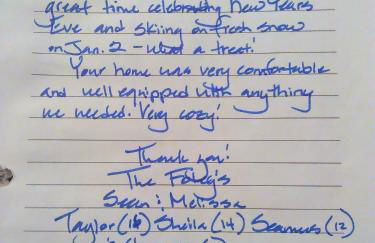 great time celebrating New Years
Eve and skiing on fresh snow
on Jan. 2 - what a treat!
Your home was very comfortable
and well equipped with anything
we needed. Very cozy!
Thank you!
The Foley's
Sean & Melissa
Taylor (16) Sheila (14) Seamus (12)